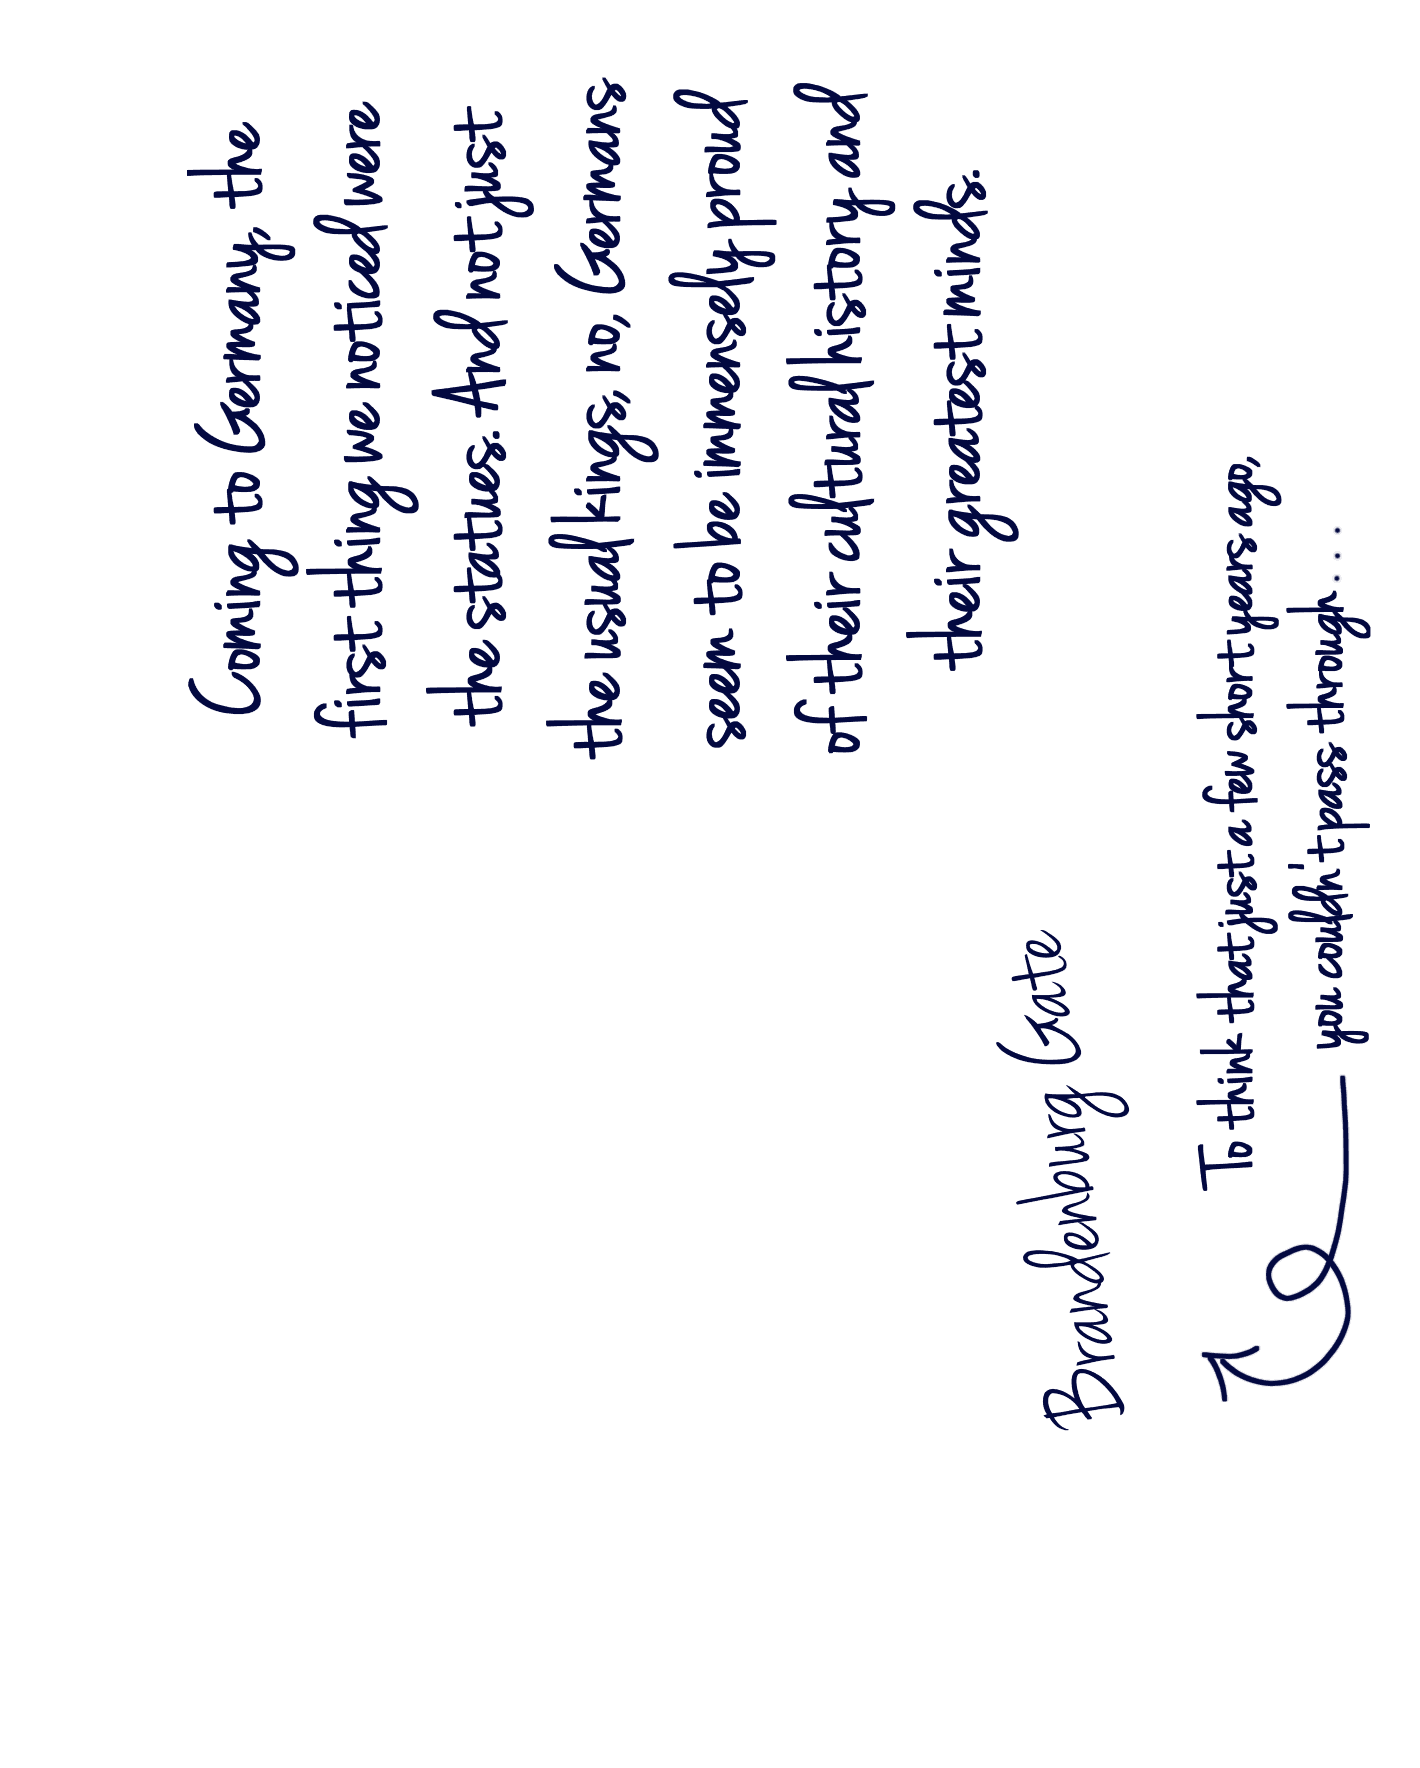 Coming to Germany, the
first thing we noticed were
the statues. And not just
the usual kings, no, Germans
seem to be immensely proud
of their cultural history and
their greatest minds.
Brandenburg Gate
To think that just a few short years ago,
you couldn't pass through....